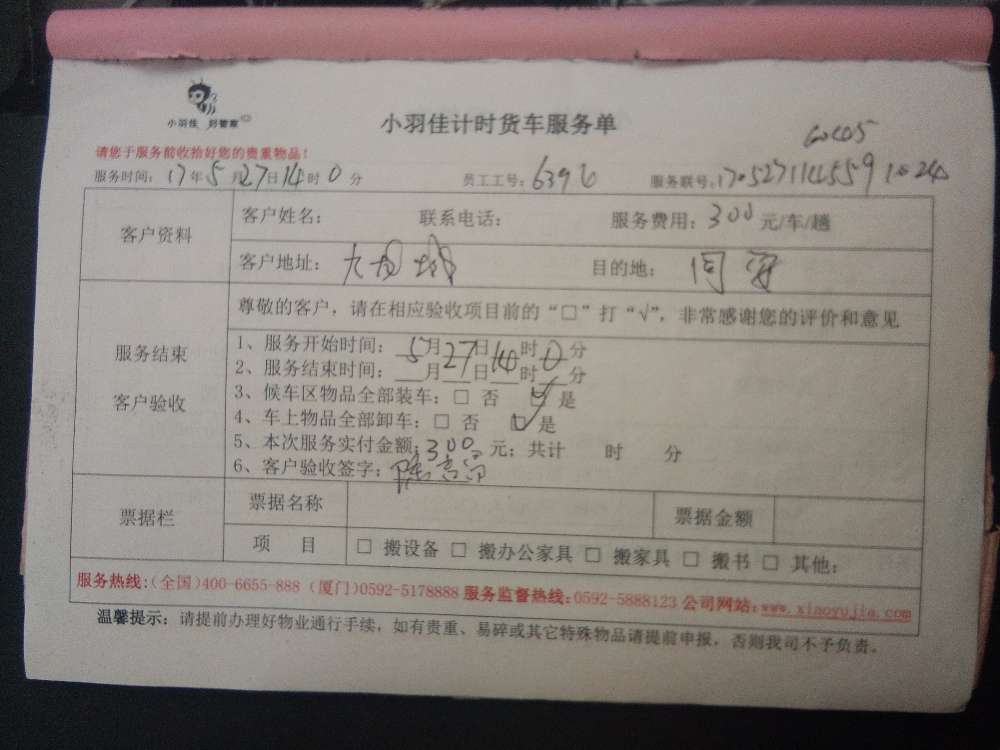 小羽佳 好管家
小羽佳计时货车服务单
请您于服务前收拾好您的贵重物品！
服务时间：17年5月27日14时0分 员工工号：6396 服务联号：
客户资料 客户姓名： 联系电话： 服务费用：300元/车/趟
客户地址： 目的地：同安
服务结束 客户验收
尊敬的客户，请在相应验收项目前的“□”打“√”，非常感谢您的评价和意见
1、服务开始时间：5月27日14时0分
2、服务结束时间：___月___日___时___分
3、候车区物品全部装车：□ 否 ☑ 是
4、车上物品全部卸车：□ 否 ☑ 是
5、本次服务实付金额：300元；共计 时 分
6、客户验收签字：
票据栏 票据名称 票据金额
项 目 □ 搬设备 □ 搬办公家具 □ 搬家具 □ 搬书 □ 其他：
服务热线：（全国）400-6655-888（厦门）0592-5178888 服务监督热线：0592-5888123 公司网站：www.xiaoyujia.com
温馨提示：请提前办理好物业通行手续，如有贵重、易碎或其它特殊物品请提前申报，否则我司不予负责。